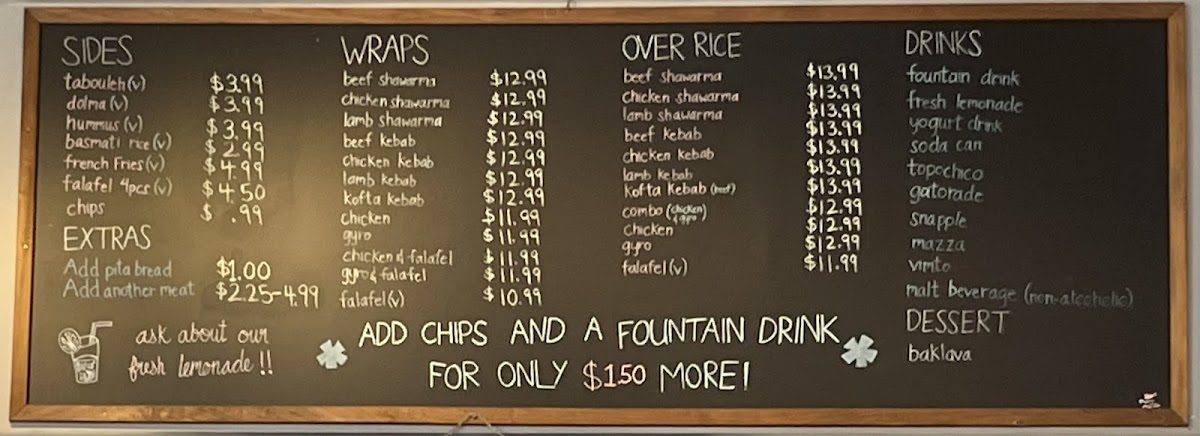 SIDES
tabouleh (v) $3.99
dolma (v) $3.99
hummus (v) $3.99
basmati rice (v) $2.99
french Fries (v) $4.99
falafel 4pcs (v) $4.50
chips $.99
EXTRAS
Add pita bread $1.00
Add another meat $2.25-4.99
ask about our
fresh lemonade!!
WRAPS
beef shawarma $12.99
chicken shawarma $12.99
lamb shawarma $12.99
beef kebab $12.99
chicken kebab $12.99
lamb kebab $12.99
kofta kebab $12.99
chicken $11.99
gyro $11.99
chicken & falafel $11.99
gyro & falafel $11.99
falafel (v) $10.99
OVER RICE
beef shawarma $13.99
chicken shawarma $13.99
lamb shawarma $13.99
beef kebab $13.99
chicken kebab $13.99
lamb kebab $13.99
kofta kebab (beef) $13.99
combo (chicken & gyro) $12.99
chicken $12.99
gyro $12.99
falafel (v) $11.99
DRINKS
fountain drink
fresh lemonade
yogurt drink
soda can
topochico
gatorade
snapple
mazza
vimto
malt beverage (non-alcoholic)
DESSERT
baklava
ADD CHIPS AND A FOUNTAIN DRINK
FOR ONLY $1.50 MORE!